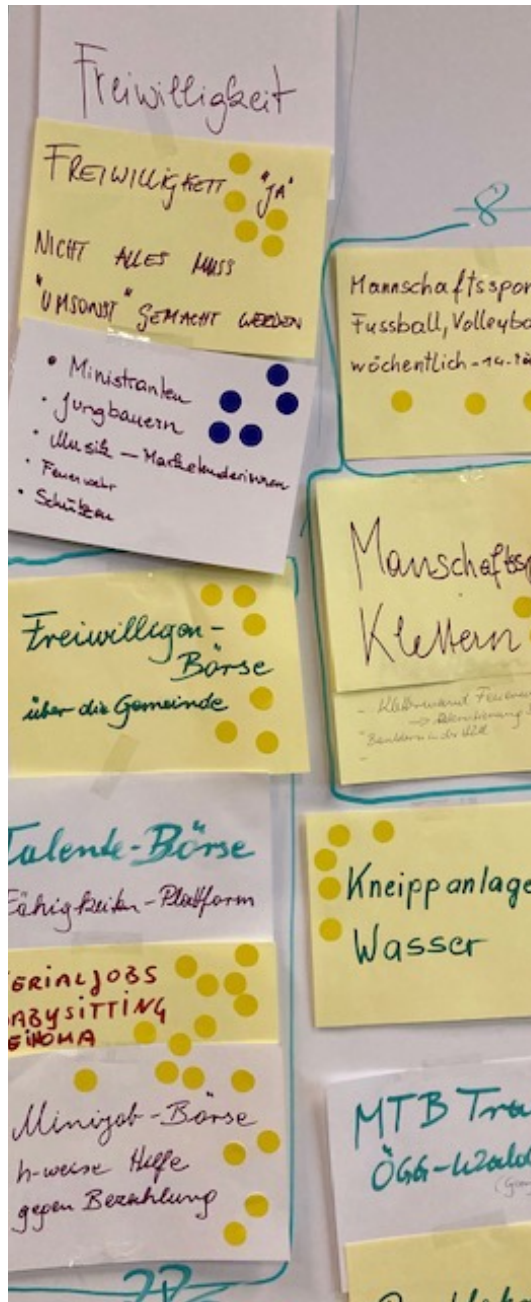 Freiwilligkeit
FREIWILLIGKEIT "JA"
NICHT ALLES MUSS
"UMSONST" GEMACHT WERDEN
• Ministranten
• Jungbauern
• Musik – Marketenderinnen
• Feuerwehr
• Schützen
Freiwilligen-
Börse
über die Gemeinde
Talente-Börse
Fähigkeiten-Plattform
ERIALJOBS
BABYSITTING
Minijob-Börse
h-weise Hilfe
gegen Bezahlung
8
Mannschaftsspor
Fussball, Volleyba
wöchentlich
Manschaftssp
Klettern
- Kletterwand Feuerw
Kneippanlage
Wasser
MTB Tra
ÖGG-Wald